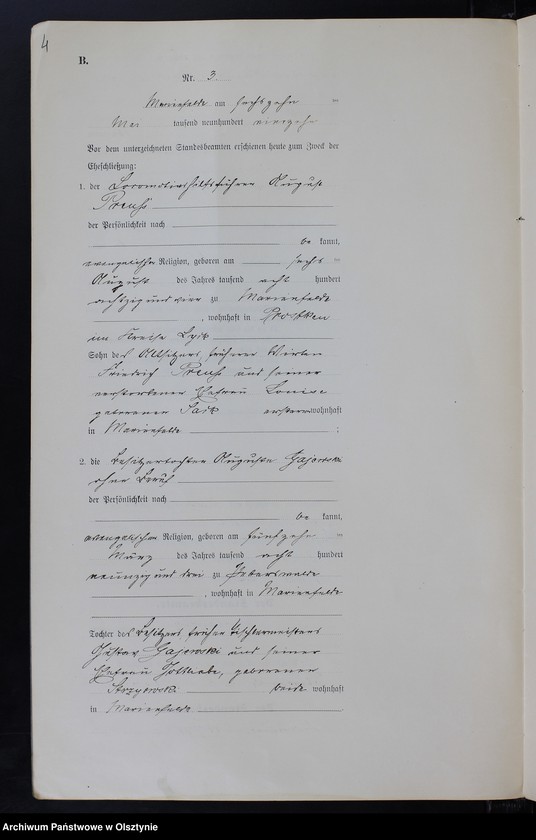 4
B.
Nr. 3.
Marienfelde am sechszehn ten
Mai tausend neunhundert vierzehn
Vor dem unterzeichneten Standesbeamten erschienen heute zum Zweck der
Eheschließung:
1. der Locomotivhilfsführer August
Preuß
der Persönlichkeit nach
be kannt,
evangelischer Religion, geboren am sechs ten
August des Jahres tausend acht hundert
achtzig und vier zu Marienfelde
, wohnhaft in Prostken
im Kreise Lyck
Sohn des Altsitzers, früheren Wirten
Friedrich Preuß und seiner
verstorbenen Ehefrau Louise
geborenen ersterer wohnhaft
in Marienfelde ;
2. die Besitzertochter Auguste Gajowski
ohne Beruf
der Persönlichkeit nach
be kannt,
evangelischer Religion, geboren am fünfzehn ten
März des Jahres tausend acht hundert
neunzig und drei zu
, wohnhaft in Marienfelde
Tochter des Besitzers früher Tischlermeisters
Gustav Gajowski und seiner
Ehefrau Gottliebe, geborenen
beide wohnhaft
in Marienfelde
Archiwum Państwowe w Olsztynie